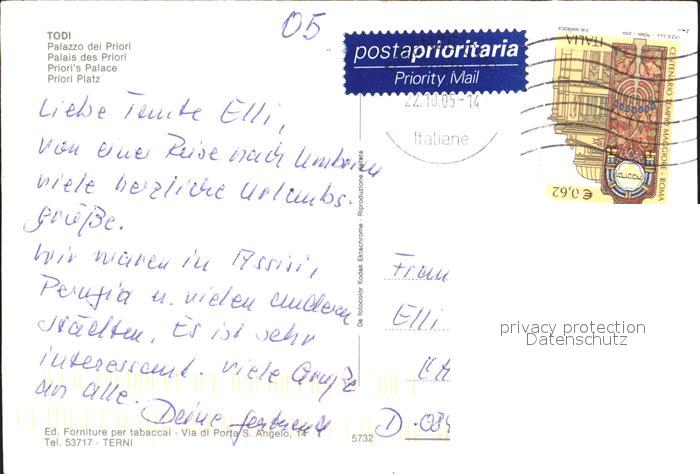 05
TODI
Palazzo dei Priori
Palais des Priori
Priori's Palace
Priori Platz
postaprioritaria
Priority Mail
22.10.05-14
Italiane
ITALIA
CENTENARIO TEMPIO MAGGIORE - ROMA
€ 0,62
Liebe Tante Elli,
von einer Reise nach Umbrien
viele herzliche Urlaubs-
grüße.
Wir waren in Assisi,
Perugia u. vielen anderen
Städten. Es ist sehr
interessant. Viele Grüße
an alle. Deine
Da fotocolor Kodak Ektachrome - Riproduzione vietata
Frau
Elli
D-084
privacy protection
Datenschutz
Ed. Forniture per tabaccai - Via di Porta S. Angelo, 14
Tel. 53717 - TERNI
5732